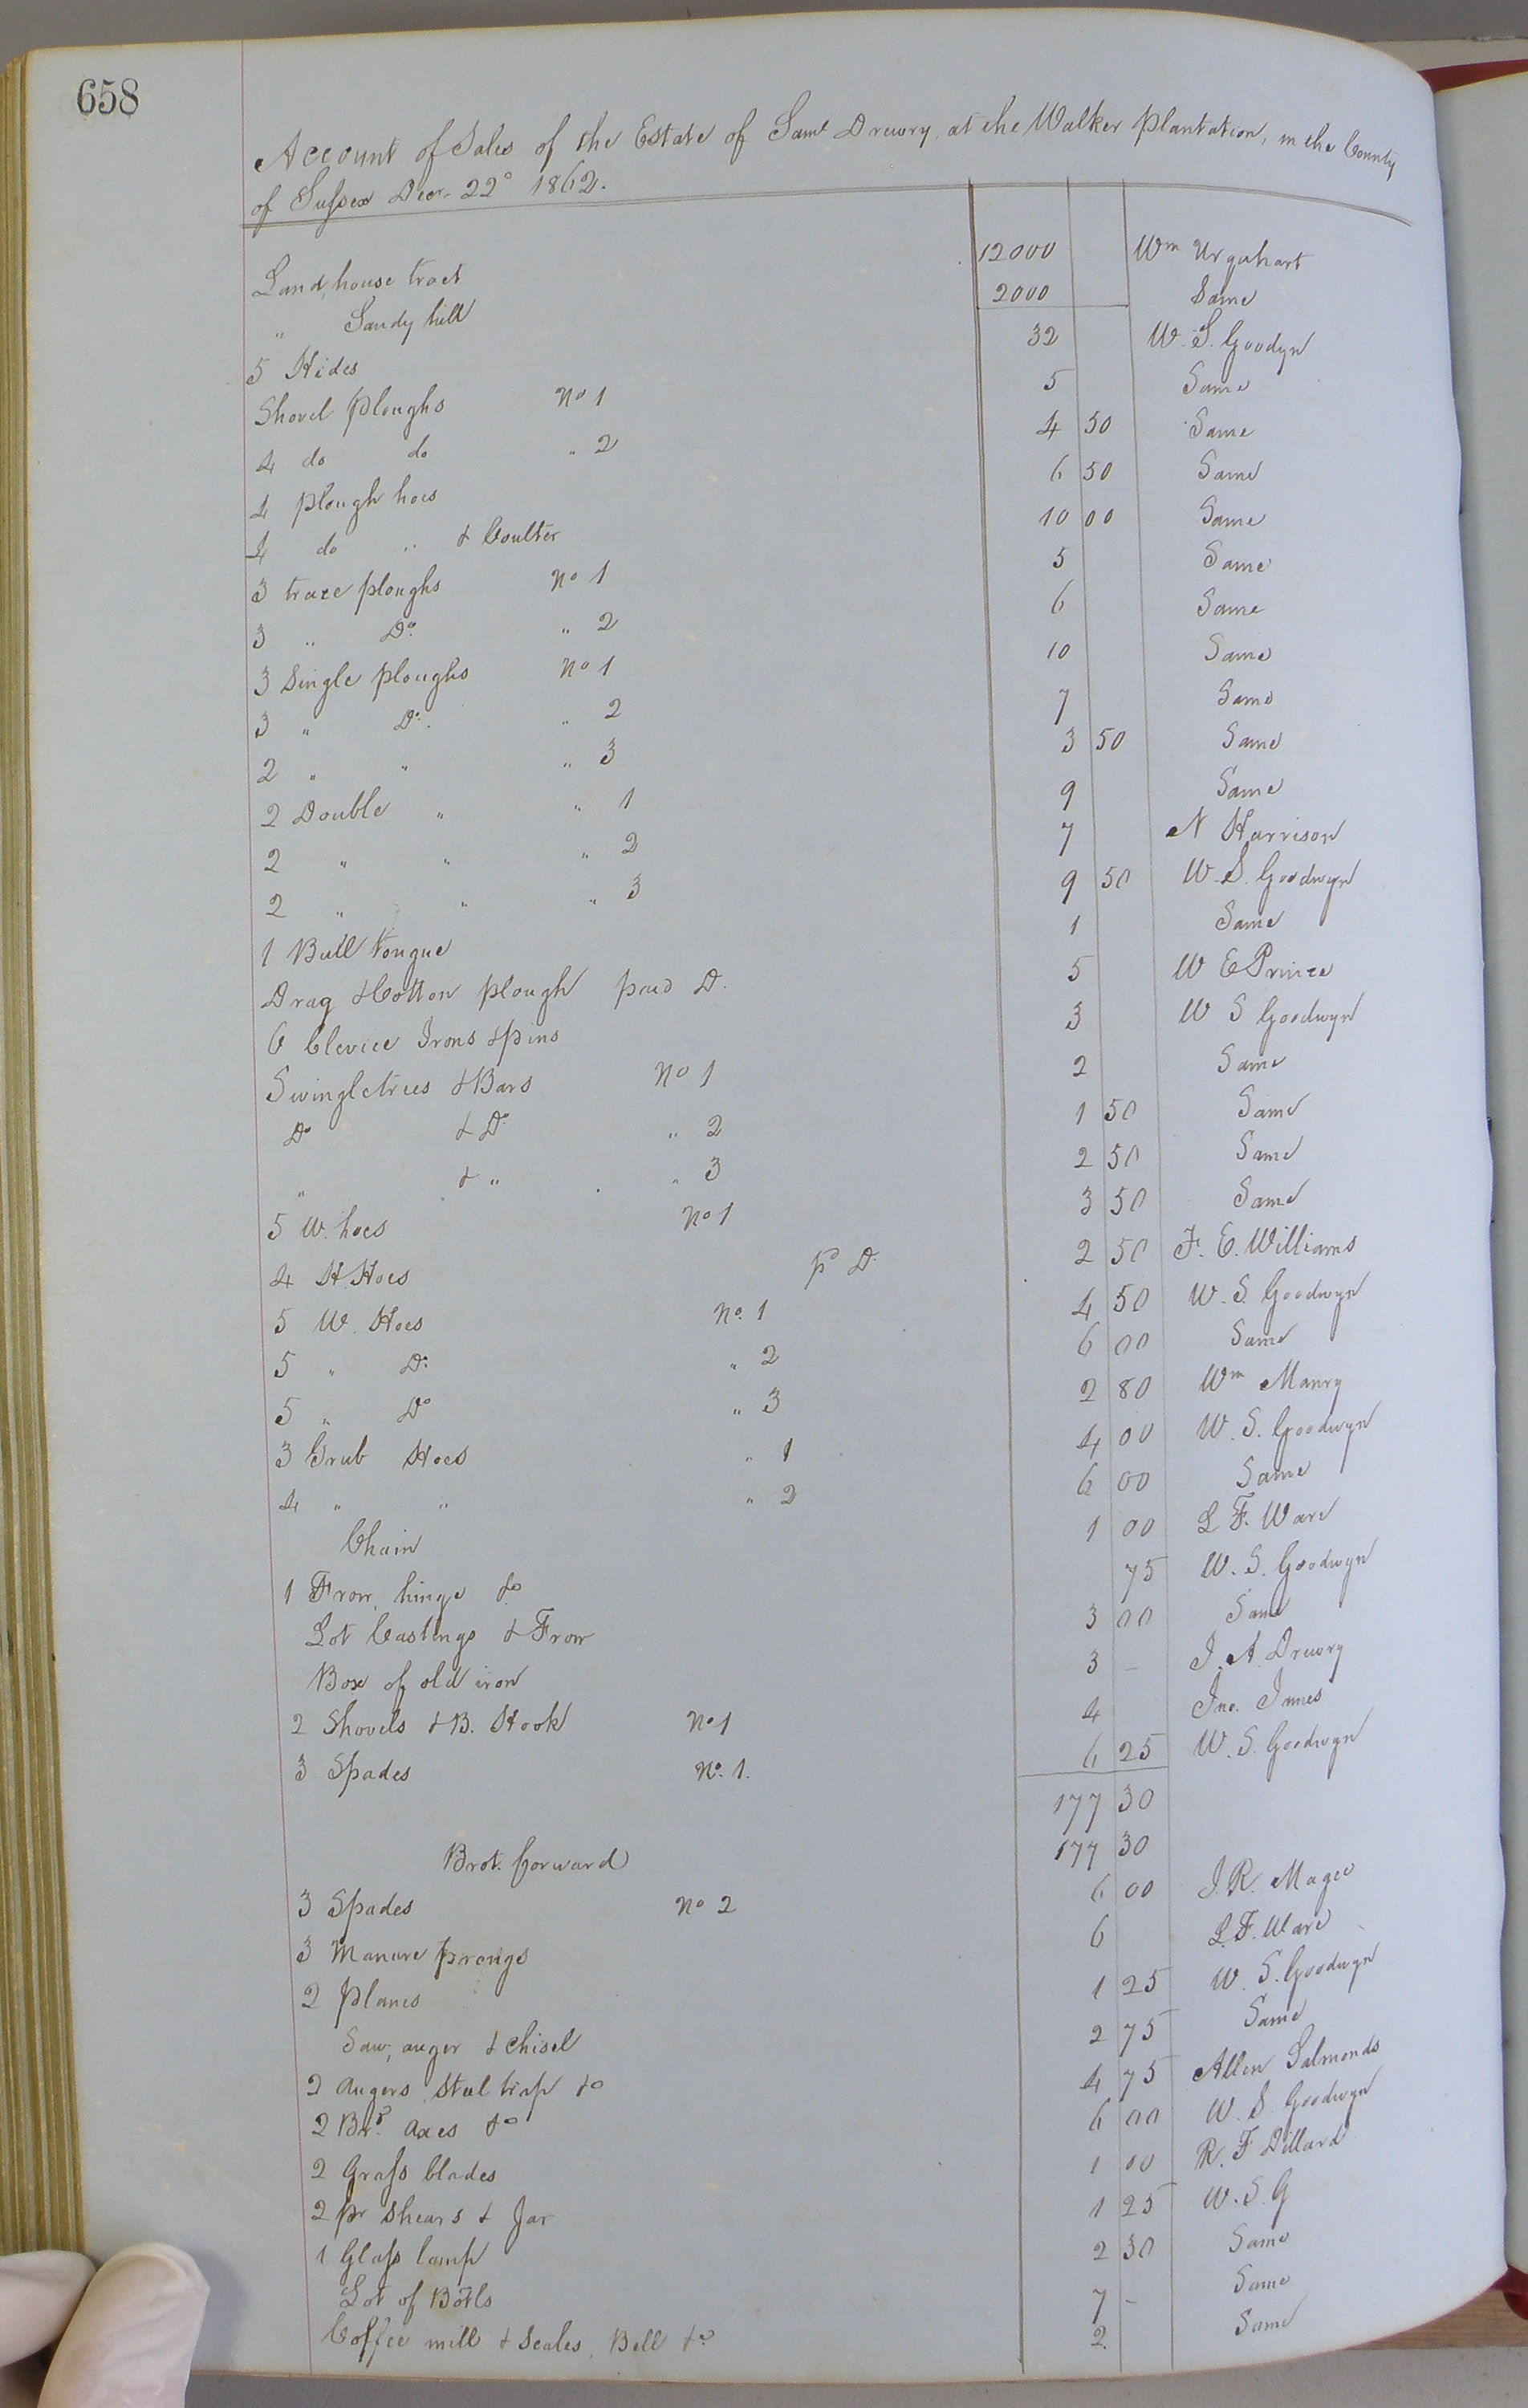 658
Account of Sales of the Estate of Saml Drewry, at the Walker Plantation, in the County
of Sussex Decr. 22d 1862.
Land, house tract 12000 Wm Urquhart
" Sandy hill 2000 Same
5 Hides 32 W. S. Goodyn
Shovel Ploughs No 1 5 Same
4 do do " 2 4 50 Same
4 plough hoes 6 50 Same
4 do " & Coulter 10 00 Same
3 trace ploughs No 1 5 Same
3 " Do. " 2 6 Same
3 Single ploughs No 1 10 Same
3 " Do. " 2 7 Same
2 " " " 3 3 50 Same
2 Double " " 1 9 Same
2 " " " 2 7 N Harrison
2 " " " 3 9 50 W. S. Goodwyn
1 Bull tongue 1 Same
Drag & Cotton plough paid D. 5 W E Prince
6 Clevice Irons & pins 3 W S Goodwyn
Swingletrees & Bars No 1 2 Same
Do & Do. " 2 1 50 Same
" & " " 3 2 50 Same
5 W. hoes No 1 3 50 Same
4 H. Hoes pd D. 2 50 F. E. Williams
5 W. Hoes No. 1 4 50 W. S. Goodwyn
5 " Do. " 2 6 00 Same
5 " Do " 3 2 80 Wm Manry
3 Grub Hoes " 1 4 00 W. S. Goodwyn
4 " " " 2 6 00 Same
Chain 1 00 L F. Ware
1 Frow, hinge &c 75 W. S. Goodwyn
Lot Castings & Frow 3 00 Same
Box of old iron 3 – J. A. Drewry
2 Shovels & B. Hook No 1 4 Jno. Innes
3 Spades No. 1. 6 25 W. S. Goodwyn
177 30
Brot. forward 177 30
3 Spades No 2 6 00 J. R. Magee
3 Manure prongs 6 L. F. Ware
2 planes 1 25 W. S. Goodwyn
Saw, auger & chisel 2 75 Same
2 augers, steel trap &c 4 75 Allen Salmonds
2 Brd. axes &c 6 00 W. S. Goodwyn
2 Grass blades 1 00 R. F Dillard
2 pr shears & Jar 1 25 W. S. G
1 Glass lamp 2 30 Same
Lot of Botls 7 – Same
Coffee mill & Scales, Bell &c. 2 Same